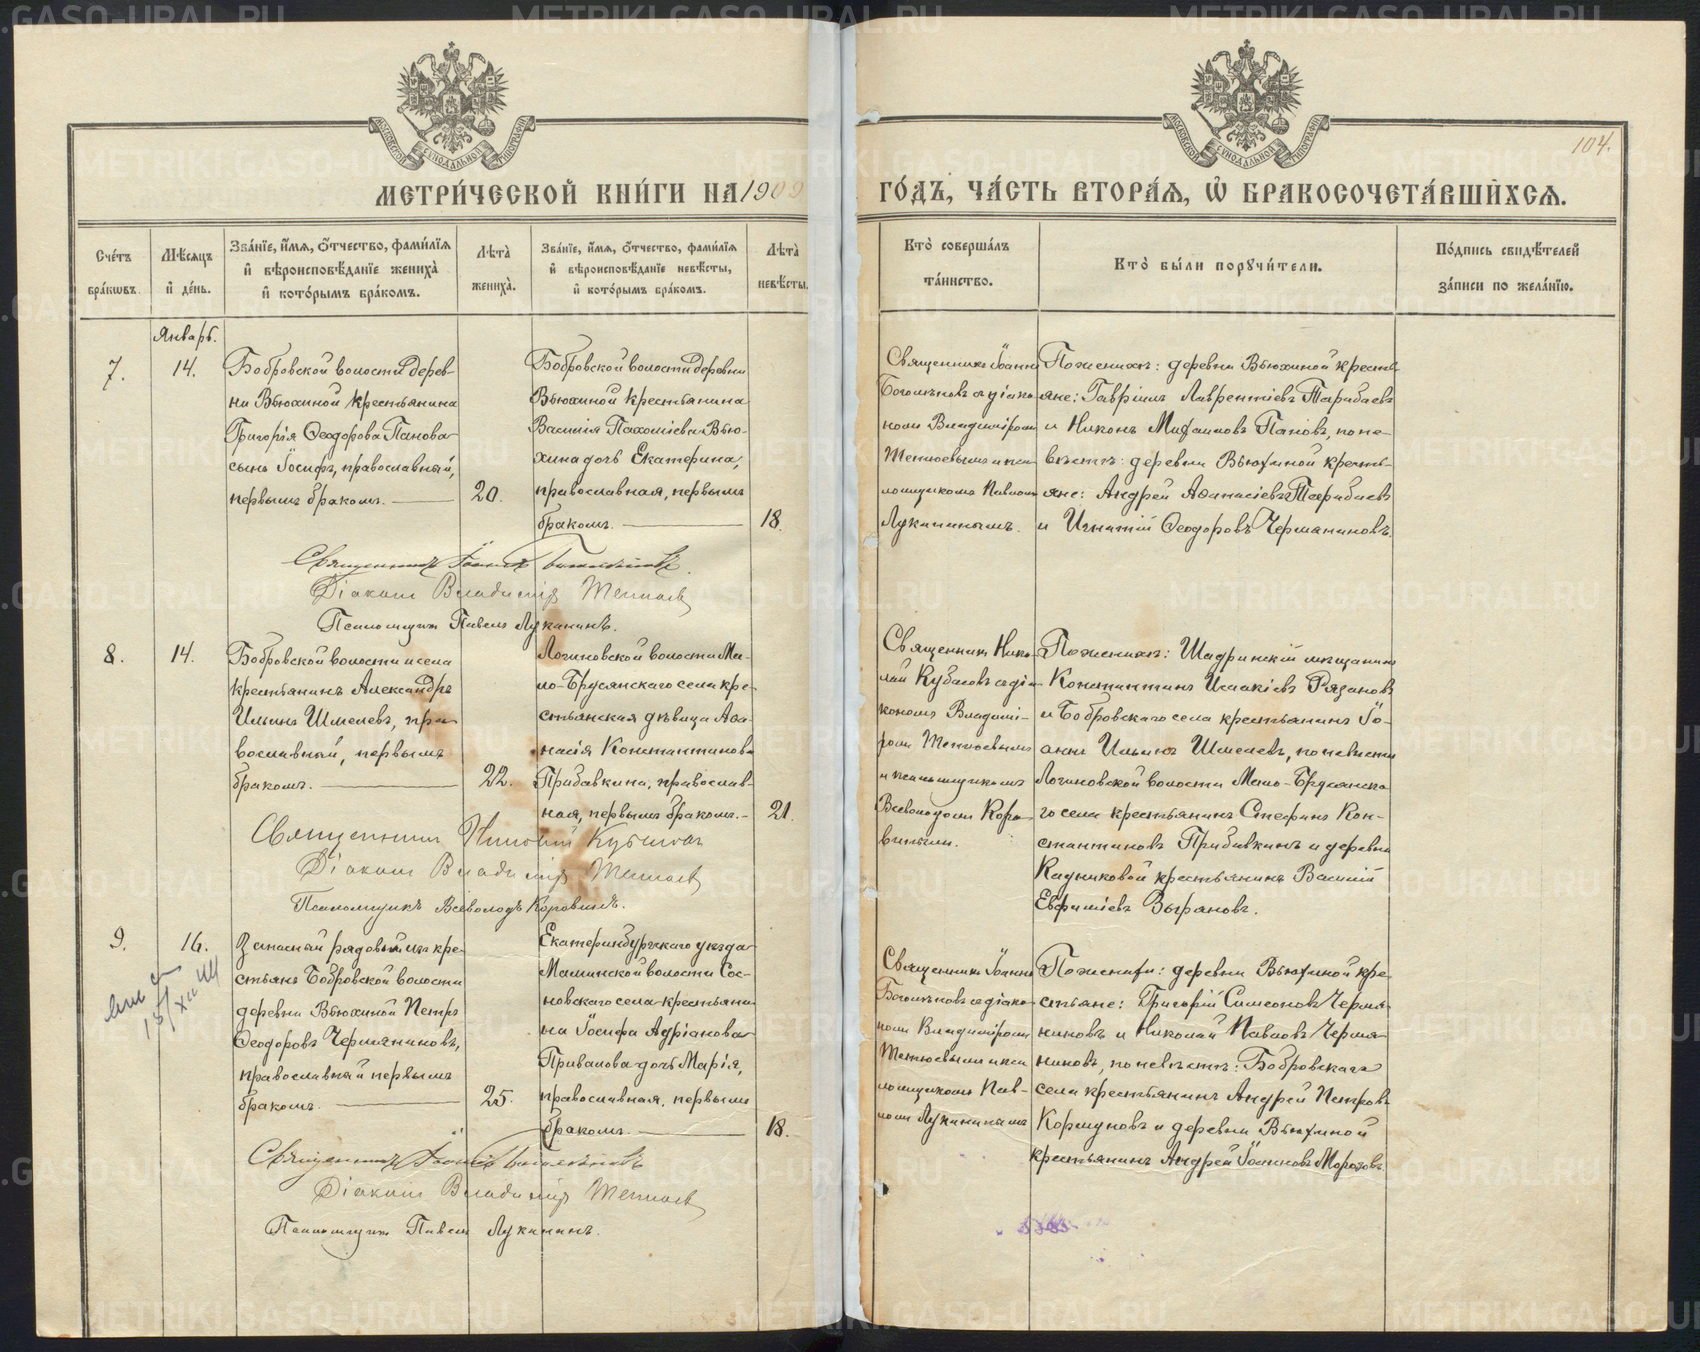 МЕТРИ́ЧЕСКОЙ КНИ́ГИ НА 1909
ГО́ДЪ, ЧА́СТЬ ВТОРА́Ѧ, Ѡ҆ БРАКОСОЧЕТА́ВШИХСѦ.
104.
МОСКОВСКОЙ СѴНОДАЛЬНОЙ ТИПОГРАФІИ
МОСКОВСКОЙ СѴНОДАЛЬНОЙ ТИПОГРАФІИ
Сче́тъ бра́кѡвъ.
Мѣ́сѧцъ и҆ де́нь.
Зва́нїе, и҆́мѧ, ѻ҆́тчество, фами́лїѧ и҆ вѣроисповѣ́данїе жениха̀ и҆ кото́рымъ бра́комъ.
Лѣ́та̀ жениха̀.
Зва́нїе, и҆́мѧ, ѻ҆́тчество, фами́лїѧ и҆ вѣроисповѣ́данїе невѣ́сты, и҆ кото́рымъ бра́комъ.
Лѣ́та̀ невѣ́сты.
Кто̀ соверша́лъ та́инство.
Кто̀ бы́ли порꙋчи́тели.
По́дпись свидѣ́телей за́писи по жела́нїю.
Январь.
7.
14.
Бобровской волости дерев-
ни Вьюхиной крестьянина
Григорія Ѳеодорова Панова
сынъ Іосифъ, православный,
первымъ бракомъ.
20.
Бобровской волости деревни
Вьюхиной крестьянина
Василія Пахоміева Вью-
хина дочь Екатерина,
православная, первымъ
бракомъ.
18.
Священникъ Іоаннъ
Боголѣповъ съ діако-
номъ Владиміромъ
Тетюевымъ и пса-
ломщикомъ Павломъ
Луканинымъ.
По женихѣ: деревни Вьюхиной кресть-
яне: Гавріилъ Лаврентіевъ Тарабаевъ
и Никонъ Михаиловъ Пановъ, по не-
вѣстѣ: деревни Вьюхиной кресть-
яне: Андрей Аѳанасіевъ Тарабаевъ
и Игнатій Ѳеодоровъ Чермяниновъ.
Священникъ Іоаннъ Боголѣповъ.
Діаконъ Владиміръ Тетюевъ
Псаломщикъ Павелъ Луканинъ.
8.
14.
Бобровской волости и села
крестьянинъ Александръ
Ильинъ Шмелевъ, пра-
вославный, первымъ
бракомъ.
22.
Логиновской волости Ма-
ло-Брусянскаго села кре-
стьянская дѣвица Аѳа-
насія Константинова
Прибавкина, православ-
ная, первымъ бракомъ.
21.
Священникъ Нико-
лай Кубасовъ съ діа-
кономъ Владимі-
ромъ Тетюевымъ
и псаломщикомъ
Всеволодомъ Коро-
винымъ.
По женихѣ: Шадринскій мѣщанинъ
Константинъ Исаакіевъ Рязановъ
и Бобровскаго села крестьянинъ Іо-
аннъ Ильинъ Шмелевъ, по невѣстѣ
Логиновской волости Мало-Брусянска-
го села крестьянинъ Стефанъ Кон-
стантиновъ Прибавкинъ и деревни
Кадниковой крестьянинъ Василій
Евфиміевъ Зыряновъ.
Священникъ Николай Кубасовъ
Діаконъ Владиміръ Тетюевъ
Псаломщикъ Всеволодъ Коровинъ.
9.
16.
Запасный рядовый изъ кре-
стьянъ Бобровской волости
деревни Вьюхиной Петръ
Ѳеодоровъ Чермяниновъ,
православный первымъ
бракомъ.
25.
Екатеринбургскаго уѣзда
Маминской волости Сос-
новскаго села крестьяни-
на Іосифа Адріанова
Привалова дочь Марія,
православная, первымъ
бракомъ.
18.
Священникъ Іоаннъ
Боголѣповъ съ діако-
номъ Владиміромъ
Тетюевымъ и пса-
ломщикомъ Пав-
ломъ Лукаринымъ
По женихѣ: деревни Вьюхиной кре-
стьяне: Григорій Симеоновъ Чермя-
ниновъ и Николай Павловъ Чермя-
ниновъ, по невѣстѣ: Бобровскаго
села крестьянинъ Андрей Петровъ
Коршуновъ и деревни Вьюхиной
крестьянинъ Андрей Іоанновъ Морозовъ.
Священникъ Іоаннъ Боголѣповъ
Діаконъ Владиміръ Тетюевъ
Псаломщикъ Павелъ Луканинъ.
METRIKI.GASO-URAL.RU